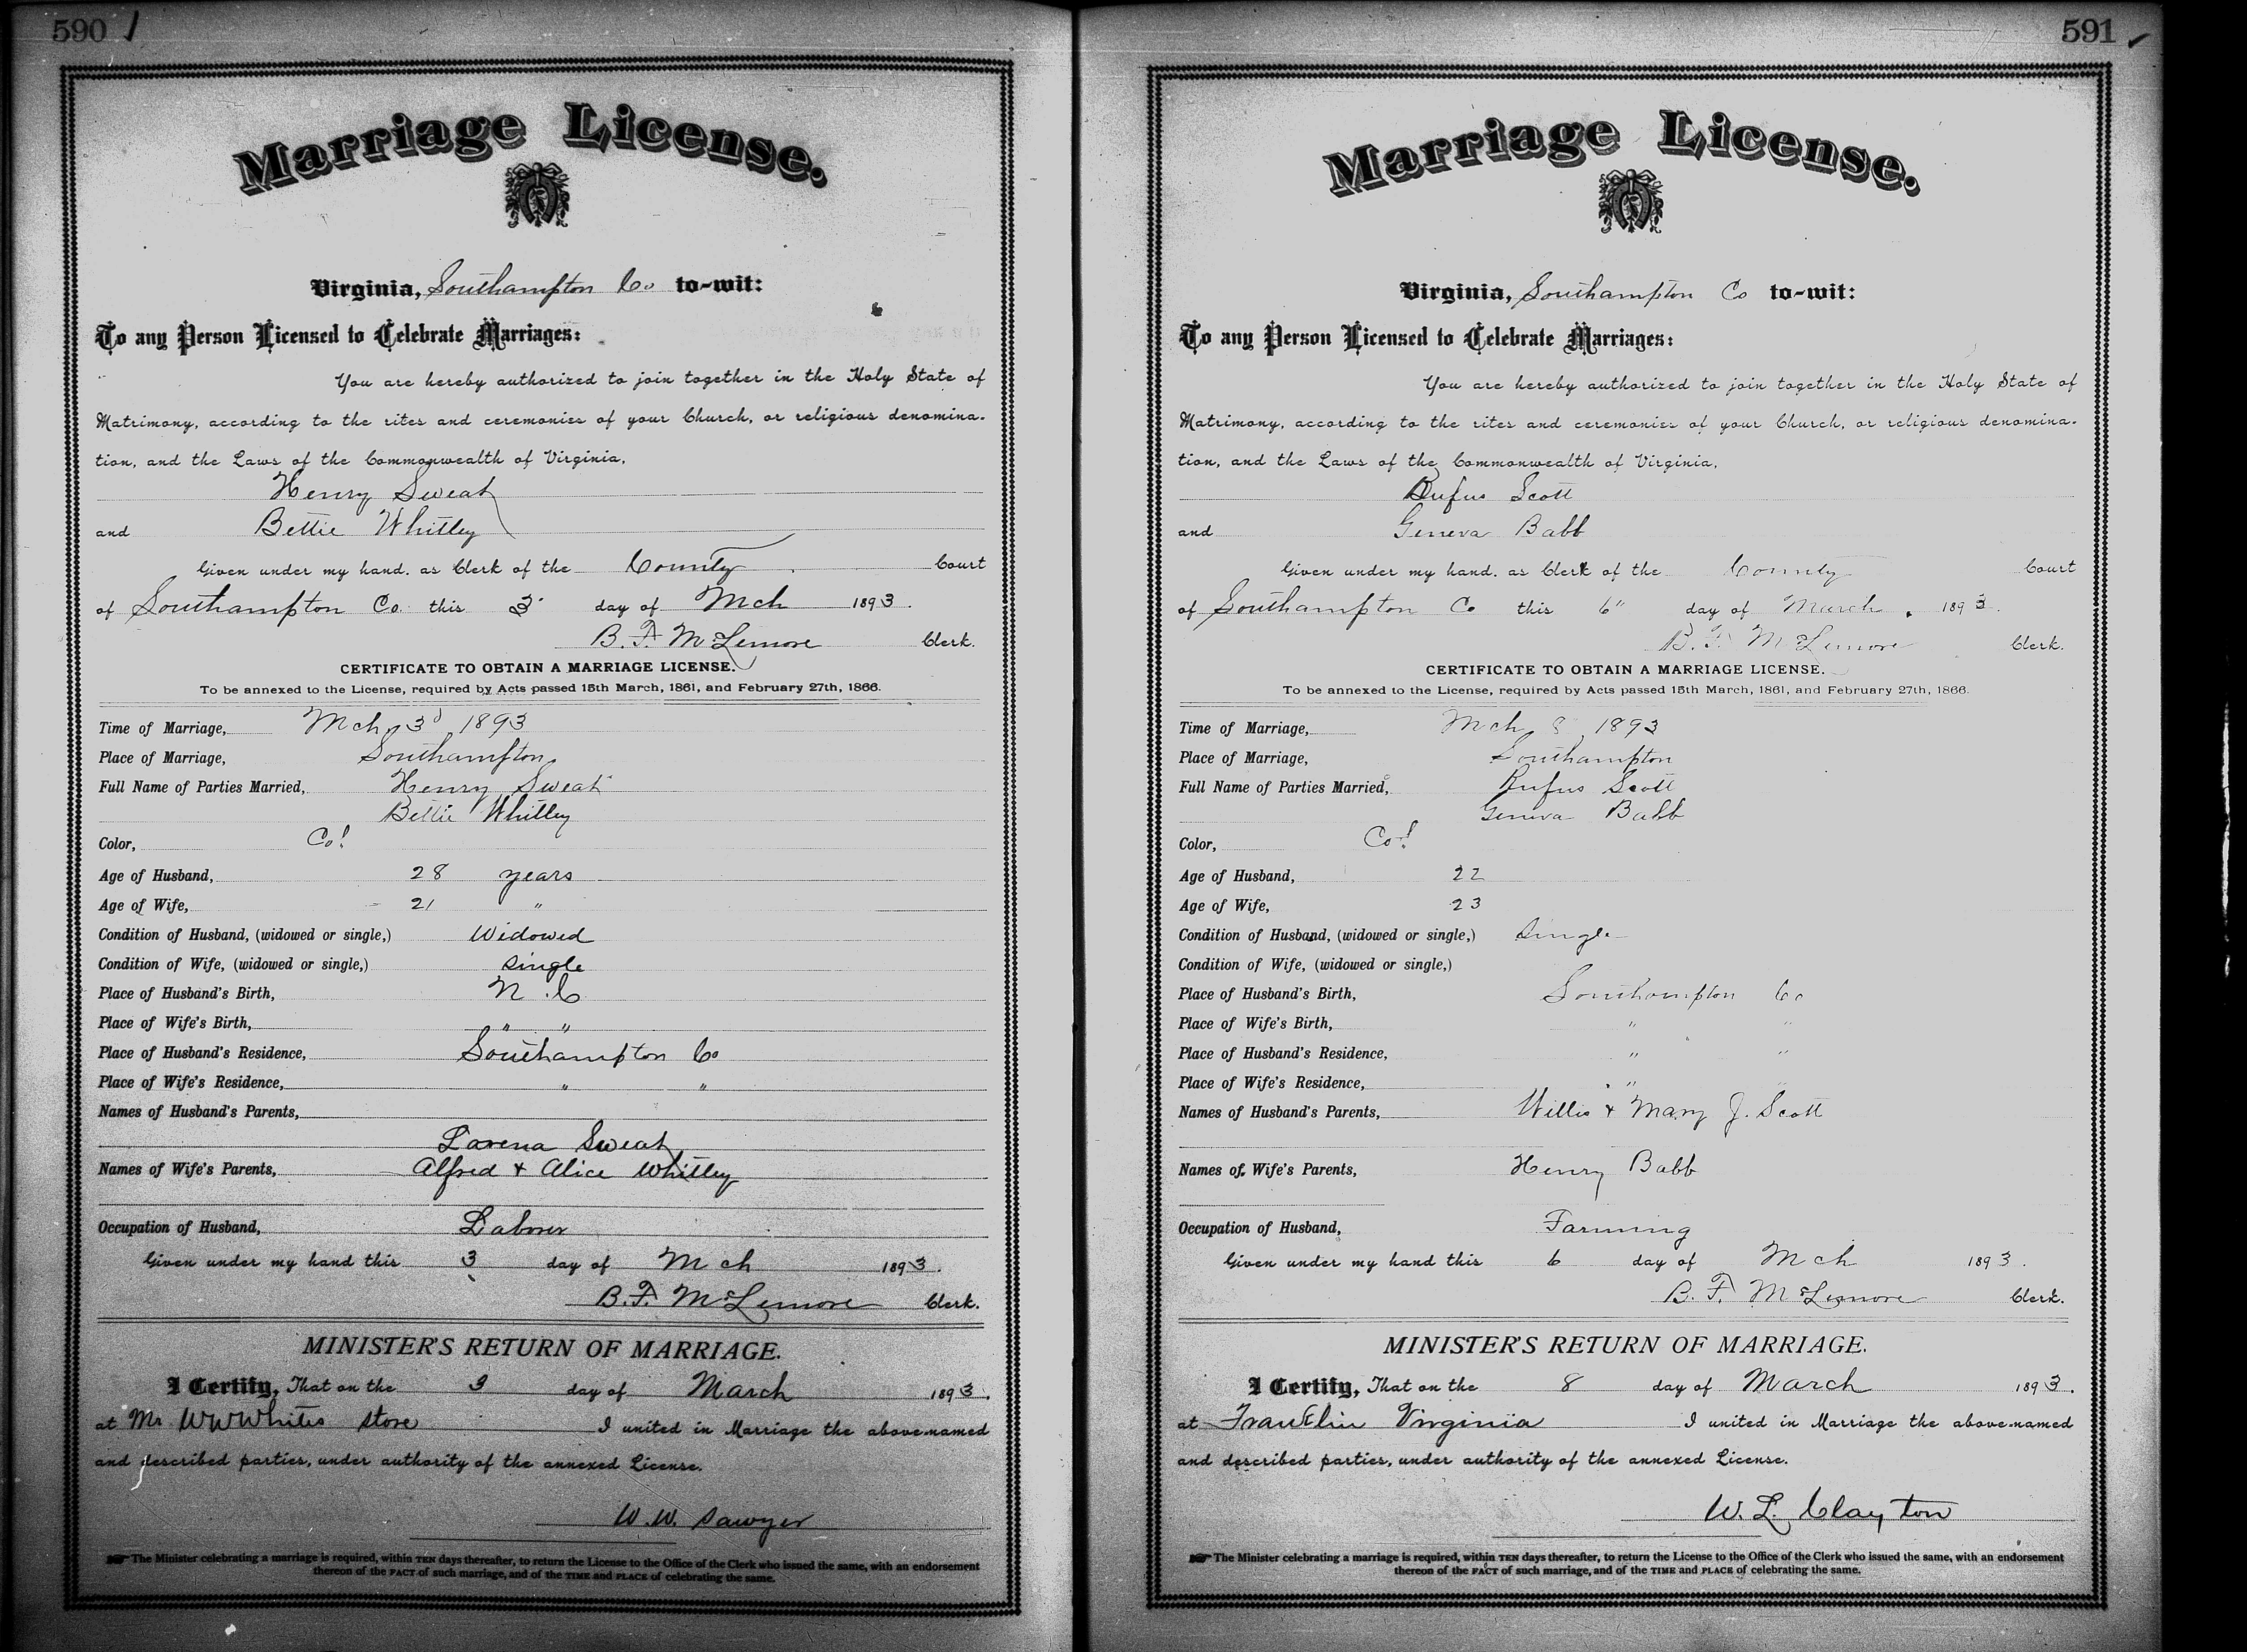 590
Marriage License.
Virginia, Southampton Co to-wit:
To any Person Licensed to Celebrate Marriages:
You are hereby authorized to join together in the Holy State of
Matrimony, according to the rites and ceremonies of your Church, or religious denomina-
tion, and the Laws of the Commonwealth of Virginia,
Henry Sweat
and Bettie Whitley
Given under my hand, as Clerk of the County Court
of Southampton Co. this 3 day of Mch 1893.
B. F. McLemore Clerk.
CERTIFICATE TO OBTAIN A MARRIAGE LICENSE.
To be annexed to the License, required by Acts passed 15th March, 1861, and February 27th, 1866.
Time of Marriage, Mch 3d 1893
Place of Marriage, Southampton
Full Name of Parties Married, Henry Sweat
Bettie Whitley
Color, Col
Age of Husband, 28 years
Age of Wife, 21 "
Condition of Husband, (widowed or single,) Widowed
Condition of Wife, (widowed or single,) single
Place of Husband's Birth, N. C
Place of Wife's Birth, " "
Place of Husband's Residence, Southampton Co
Place of Wife's Residence, " "
Names of Husband's Parents,
Lavena Sweat
Names of Wife's Parents, Alfred + Alice Whitley
Occupation of Husband, Laborer
Given under my hand this 3 day of Mch 1893.
B. F. McLemore Clerk.
MINISTER'S RETURN OF MARRIAGE.
I Certify, That on the 3 day of March 1893.
at Mr W W Whites store I united in Marriage the above-named
and described parties, under authority of the annexed License.
W. W. Sawyer
The Minister celebrating a marriage is required, within TEN days thereafter, to return the License to the Office of the Clerk who issued the same, with an endorsement
thereon of the FACT of such marriage, and of the TIME and PLACE of celebrating the same.
591
Marriage License.
Virginia, Southampton Co to-wit:
To any Person Licensed to Celebrate Marriages:
You are hereby authorized to join together in the Holy State of
Matrimony, according to the rites and ceremonies of your Church, or religious denomina-
tion, and the Laws of the Commonwealth of Virginia,
Rufus Scott
and Geneva Babb
Given under my hand, as Clerk of the County Court
of Southampton Co this 6" day of March. 1893.
B. F. McLemore Clerk.
CERTIFICATE TO OBTAIN A MARRIAGE LICENSE.
To be annexed to the License, required by Acts passed 15th March, 1861, and February 27th, 1866.
Time of Marriage, Mch 8 1893
Place of Marriage, Southampton
Full Name of Parties Married, Rufus Scott
Geneva Babb
Color, Col
Age of Husband, 22
Age of Wife, 23
Condition of Husband, (widowed or single,) Single
Condition of Wife, (widowed or single,)
Place of Husband's Birth, Southampton Co
Place of Wife's Birth, " "
Place of Husband's Residence, " "
Place of Wife's Residence, " "
Names of Husband's Parents, Willis + Mary J. Scott
Names of Wife's Parents, Henry Babb
Occupation of Husband, Farming
Given under my hand this 6 day of Mch 1893.
B. F. McLemore Clerk.
MINISTER'S RETURN OF MARRIAGE.
I Certify, That on the 8 day of March 1893.
at Franklin Virginia I united in Marriage the above-named
and described parties, under authority of the annexed License.
W. L. Clayton
The Minister celebrating a marriage is required, within TEN days thereafter, to return the License to the Office of the Clerk who issued the same, with an endorsement
thereon of the FACT of such marriage, and of the TIME and PLACE of celebrating the same.